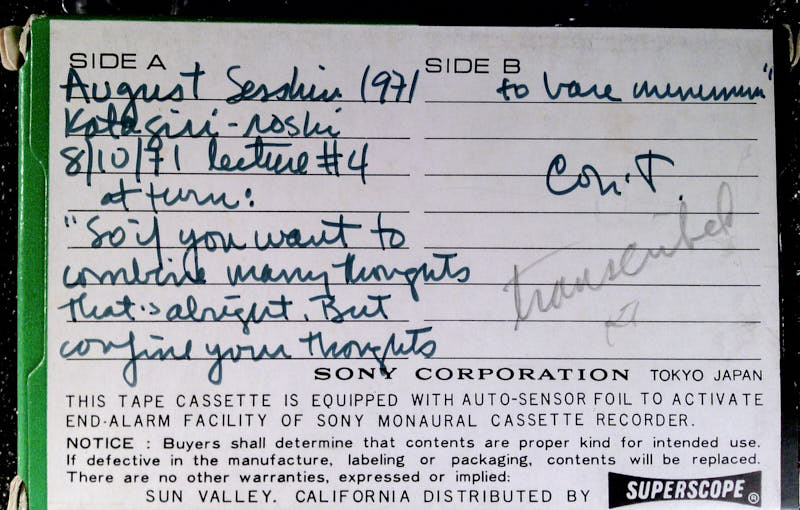 SIDE A
August Sesshin 1971
Katagiri-roshi
8/10/71 lecture #4
at turn:
"So if you want to
combine many thoughts
that's alright. But
confine your thoughts
SIDE B
to bare minimum"
Con.T.
transcribed
SONY CORPORATION TOKYO JAPAN
THIS TAPE CASSETTE IS EQUIPPED WITH AUTO-SENSOR FOIL TO ACTIVATE
END-ALARM FACILITY OF SONY MONAURAL CASSETTE RECORDER.
NOTICE : Buyers shall determine that contents are proper kind for intended use.
If defective in the manufacture, labeling or packaging, contents will be replaced.
There are no other warranties, expressed or implied:
SUN VALLEY. CALIFORNIA DISTRIBUTED BY SUPERSCOPE®